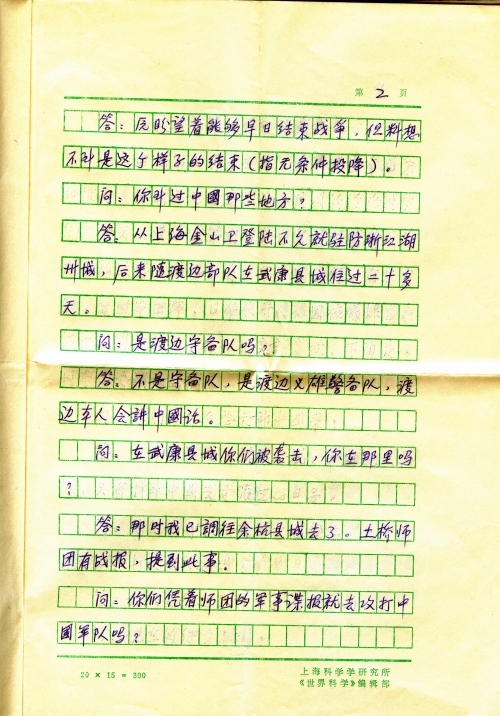 第 2 頁
答：反盼望着能够早日结束战争，但料想
不到是这个样子的结束（指无条件投降）。
问：你到过中國那些地方？
答：从上海金山卫登陆不久就驻防浙江湖
州城，后来随渡边部队在武康县城住过二十多
天。
问：是渡边守备队吗？
答：不是守备队，是渡边义雄警备队，渡
边本人会討中國话。
问：在武康县城你们被袭击，你在那里吗
？
答：那时我已調往余杭县城去了。土桥师
团有战报，提到此事。
问：你们凭着师团的军事谍报就去攻打中
國军队吗？
20 × 15 = 300
上海科学学研究所
《世界科学》编辑部